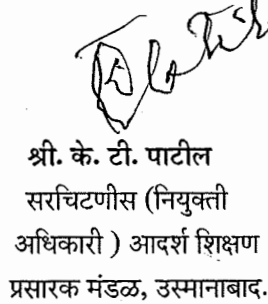 श्री. के. टी. पाटील
सरचिटणीस (नियुक्ती
अधिकारी ) आदर्श शिक्षण
प्रसारक मंडळ, उस्मानाबाद.